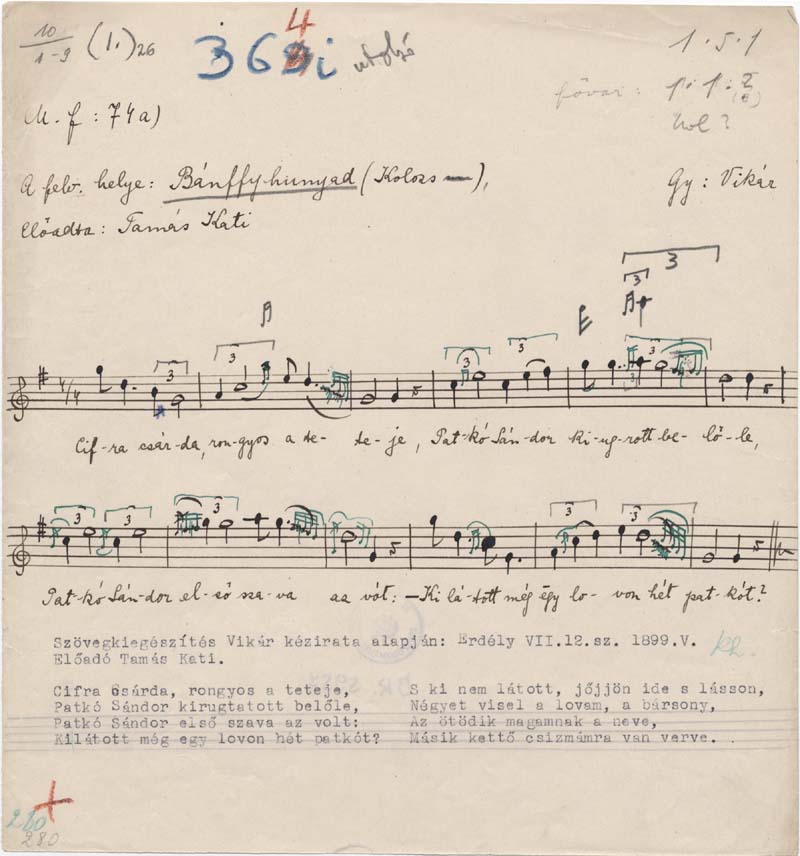 10
1-9 (I.) 26
364i utolsó
1 . 5 . 1
M. f : 74a)
A felv. helye: Bánffy-hunyad (Kolozs —),
Gy : Vikár
Előadta : Tamás Kati
Cif-ra csár-da, ron-gyos a te- te-je, Pat-kó Sán-dor ki-ug-rott be- lő-le,
Pat-kó Sán-dor el-ső sza-va az vót: — Ki lá-tott még ëgy lo- von hét pat-kót?
Szövegkiegészítés Vikár kézirata alapján: Erdély VII.12.sz. 1899.V.
Előadó Tamás Kati.
Cifra Gsárda, rongyos a teteje,
Patkó Sándor kirugtatott belőle,
Patkó Sándor első szava az volt:
Kilátott még egy lovon hét patkót?
S ki nem látott, jőjjön ide s lásson,
Négyet visel a lovam, a bársony,
Az ötödik magamnak a neve,
Másik kettő csizmámra van verve.
280
280